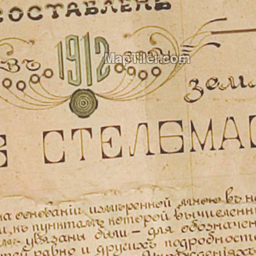 СОСТАВЛЕНЪ
ВЪ 1912 году
MapTiler.com
земл
Е СТЕЛБМА
на основаніи измѣренной мною въ н
и, къ пунктамъ которой вычислен
увязаны были - для обозначен
равно и другихъ подробносте